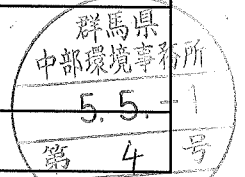 群馬県
中部環境事務所
5. 5. -1
第 4 号